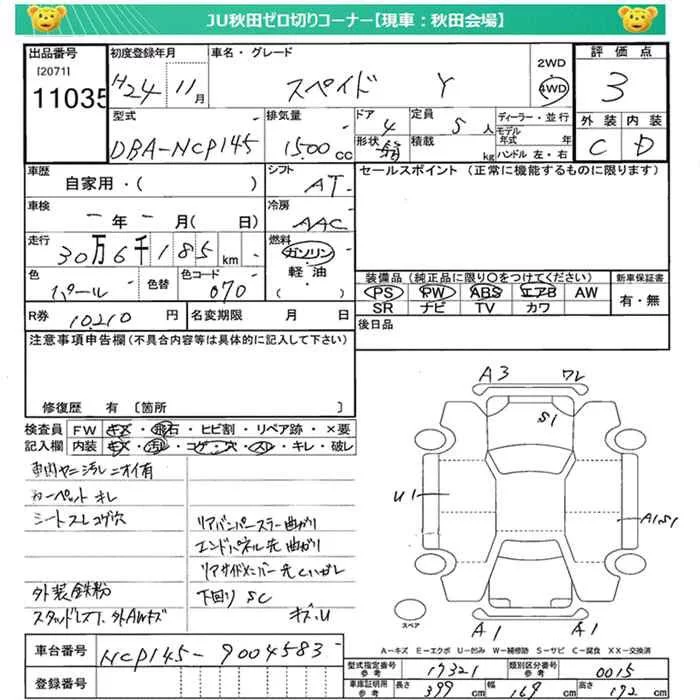 JU秋田ゼロ切りコーナー【現車：秋田会場】
出品番号 [2071] 11035
初度登録年月 H24 11月
車名・グレード スペイド Y
2WD 4WD
評価点 3
外装 C 内装 D
型式 DBA-NCP145
排気量 1500cc
ドア 4 形状 箱
定員 5人 積載 kg
ディーラー・並行
モデル年式 年
ハンドル 左・右
車歴 自家用・( )
シフト AT
車検 - 年 - 月( 日)
冷房 AAC
走行 30万6千185km
燃料 ガソリン・軽油・( )
色 パール 色替 色コード 070
R券 10,210円 名変期限 月 日
セールスポイント (正常に機能するものに限ります)
装備品 (純正品に限り○をつけてください)
PS PW ABS エアB AW
SR ナビ TV カワ
新車保証書 有・無
後日品
注意事項申告欄(不具合内容等は具体的に記入して下さい)
修復歴 有 〔箇所 〕
検査員記入欄
FW キズ・飛石・ヒビ割・リペア跡・×要
内装 キズ・汚れ・コゲ・穴・スレ・キレ・破レ
車内ヤニ汚レ ニオイ有
カーペットキレ
シートスレコゲ穴
外装鉄粉
スタッドレス 外AWキズ
リアバンパーステー曲がり
エンドパネル先曲がり
リアサイドメンバー先
下回り SC
キズ・U
A3 ワレ
S1
U1
A1S1
A1 A1
スペア
A－キズ E－エクボ U－凹み W－補修跡 S－サビ C－腐食 XX－交換済
車台番号 NCP145-9004583
登録番号
型式指定番号 参考 17321 類別区分番号 参考 0015
車庫証明用 参考 長さ 399cm 幅 169cm 高さ 172cm